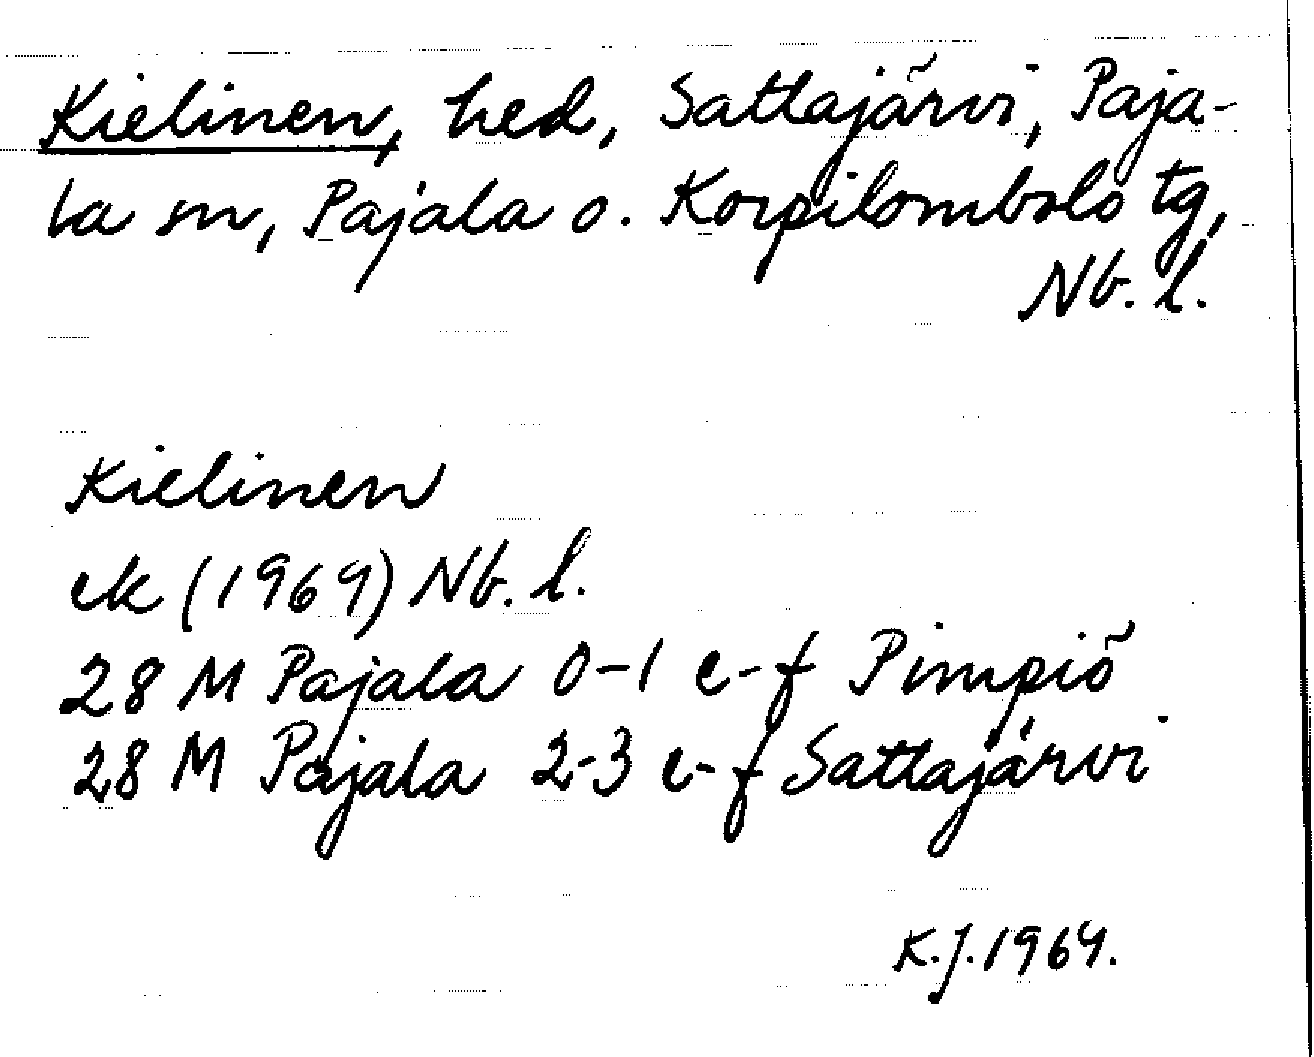 Kielinen, hed, Sattajärvi, Paja-
la sn, Pajala o. Korpilombolo tg,
Nb. l.
Kielinen
ek (1969) Nb. l.
28 M Pajala 0-1 e-f Pimpiö
28 M Pajala 2-3 e-f Sattajärvi
K.J. 1969.